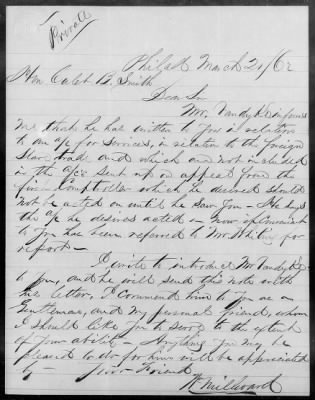 Private
Philada March 21/62
Hon Caleb B. Smith
Dear Sir
Mr. Vandyke informs
me that he has written to you in relation
to an a/c for services, in relation to the foreign
Slave trade and which are not included
in the a/cs sent up on appeal from the
first Comptroller which he desired should
not be acted on until he saw you - He says
the a/c he desires acted on now
to you has been referred to Mr. Whiting for
report -
I write to introduce Mr. Vandyke
to you, and he will send this note with
his letter. I commend him to you as a
Gentleman, and my personal friend, whom
I should like you to serve to the extent
of your ability - Anything you may be
pleased to do for him will be appreciated
by - your Friend
W. Millward